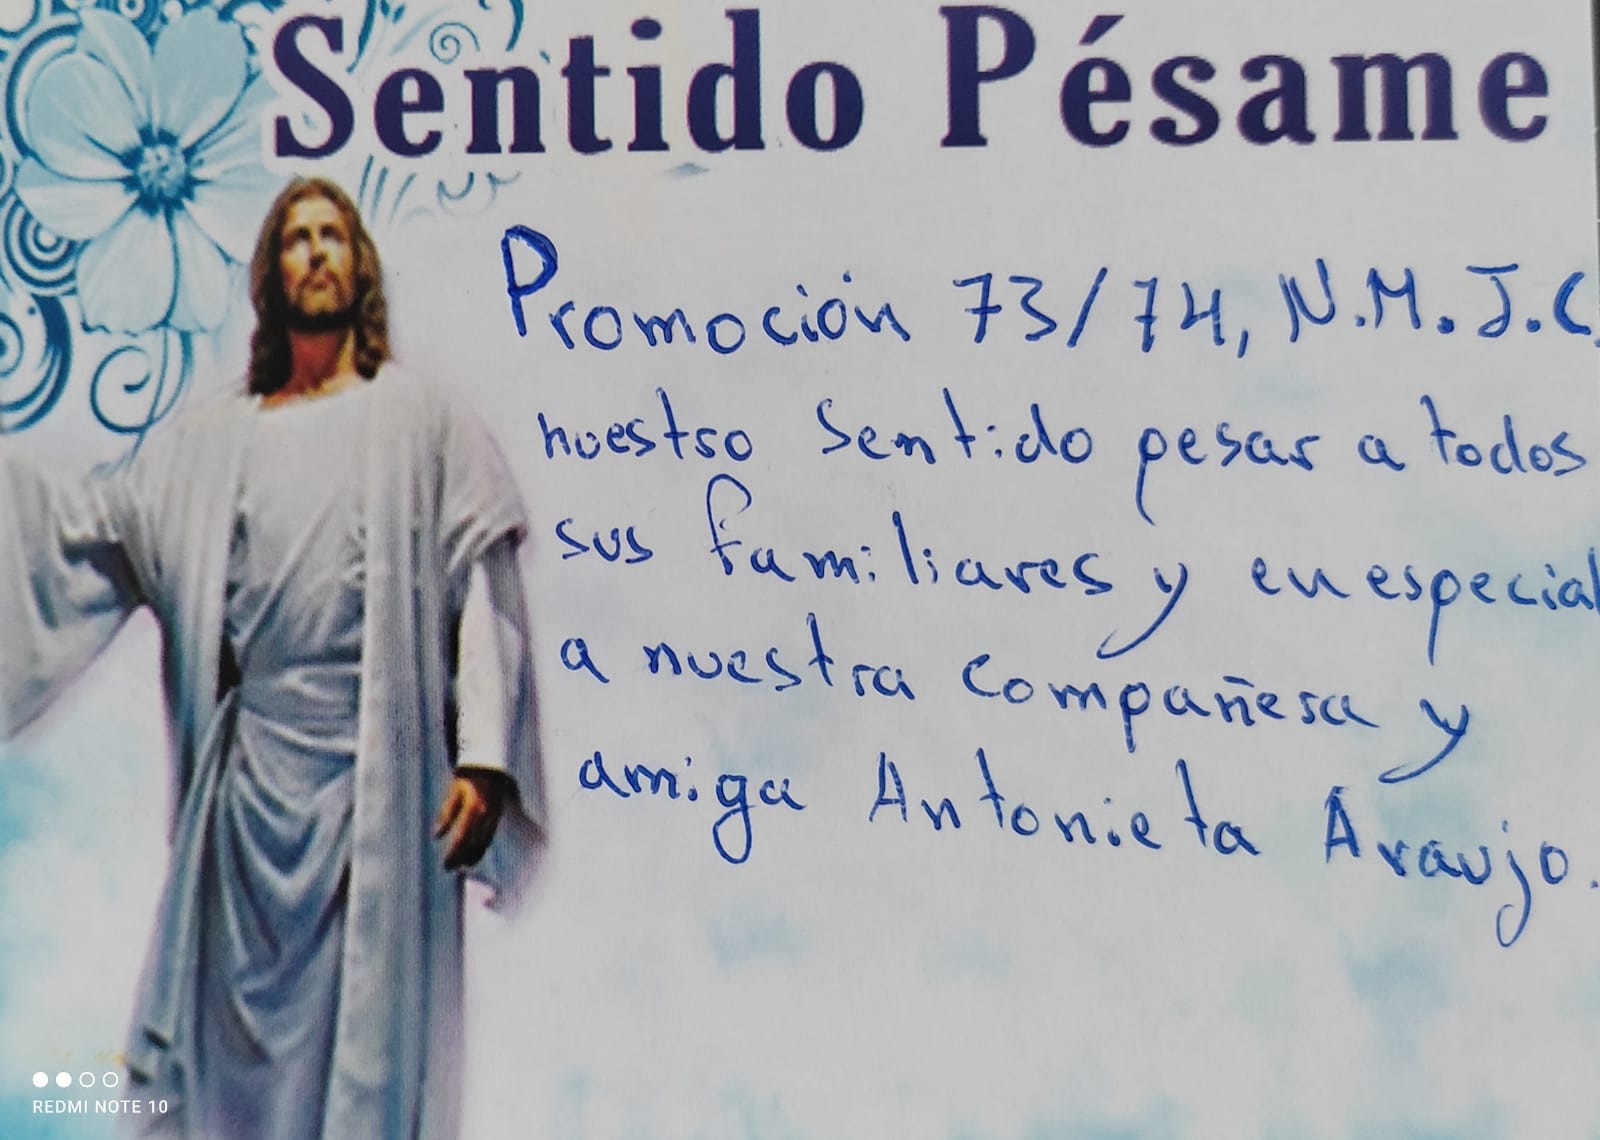 Sentido Pésame
Promoción 73/74, N.M.J.C.
nuestro Sentido pesar a todos
sus familiares y en especial
a nuestra compañera y
amiga Antonieta Araujo.
REDMI NOTE 10